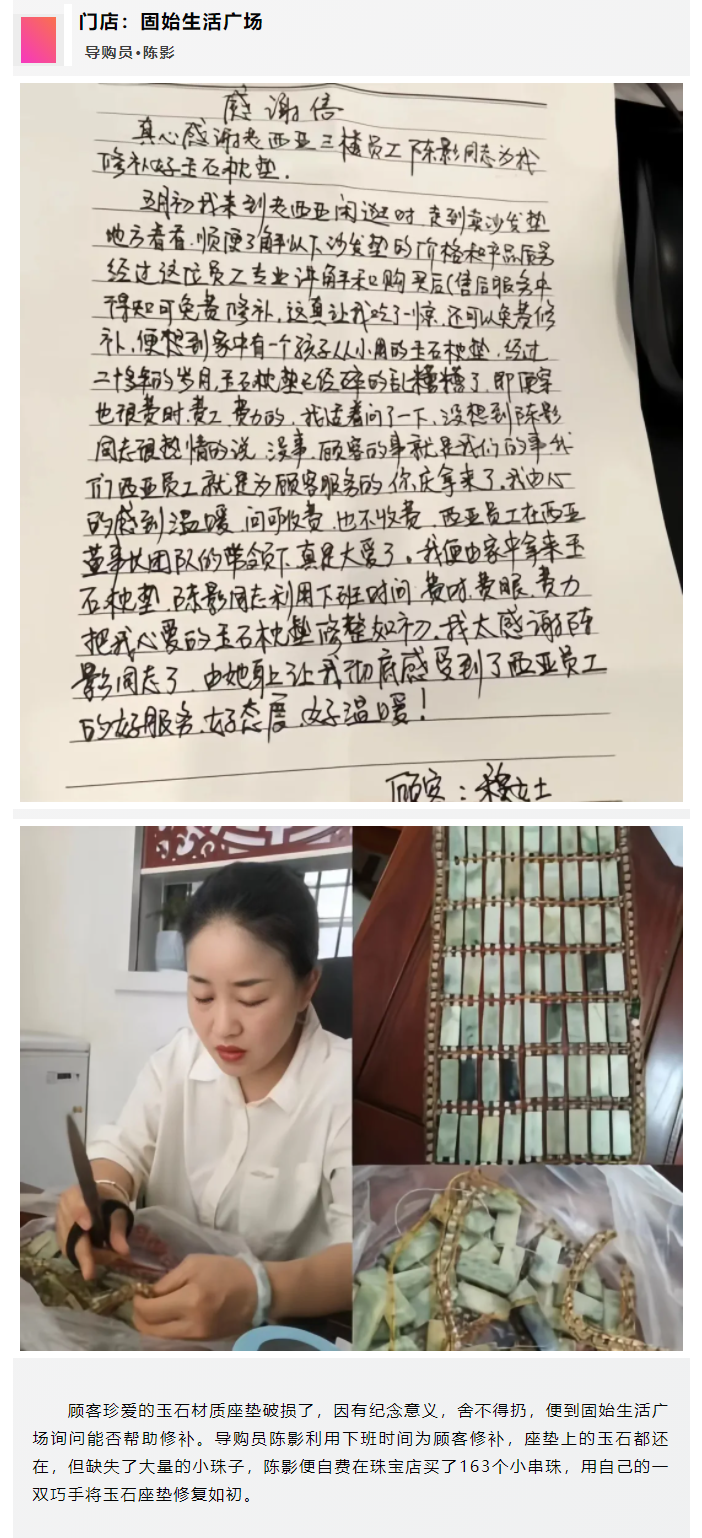 门店：固始生活广场
导购员•陈影
感谢信
真心感谢老西亚三楼员工陈影同志为我
修补好玉石枕垫.
五月初我来到老西亚闲逛时,走到卖沙发垫
地方看看,顺便了解以下沙发垫的价格和产品质另
经过这位员工专业讲解和购买后(售后服务中
得知可免费修补,这真让我吃了一惊,还可以免费修
补,便想到家中有一个孩子从小用的玉石枕垫,经过
二十多年的岁月,玉石枕垫已经碎的乱糟糟了,即便穿
也很费时,费工,费力的,我试着问了一下,没想到陈影
同志很热情的说,没事,顾客的事就是我们的事我
们西亚员工就是为顾客服务的你庆拿来了,我由心
的感到温暖,问可收费,也不收费,西亚员工在西亚
董事长团队的带领下,真是大爱了,我便由家中拿来玉
石枕垫,陈影同志利用下班时间,费时,费眼,费力
把我心爱的玉石枕垫修整如初,我太感谢陈
影同志了,由她身上让我彻底感受到了西亚员工
的好服务,好态度,好温暖!
顾客:穆女士
顾客珍爱的玉石材质座垫破损了，因有纪念意义，舍不得扔，便到固始生活广
场询问能否帮助修补。导购员陈影利用下班时间为顾客修补，座垫上的玉石都还
在，但缺失了大量的小珠子，陈影便自费在珠宝店买了163个小串珠，用自己的一
双巧手将玉石座垫修复如初。